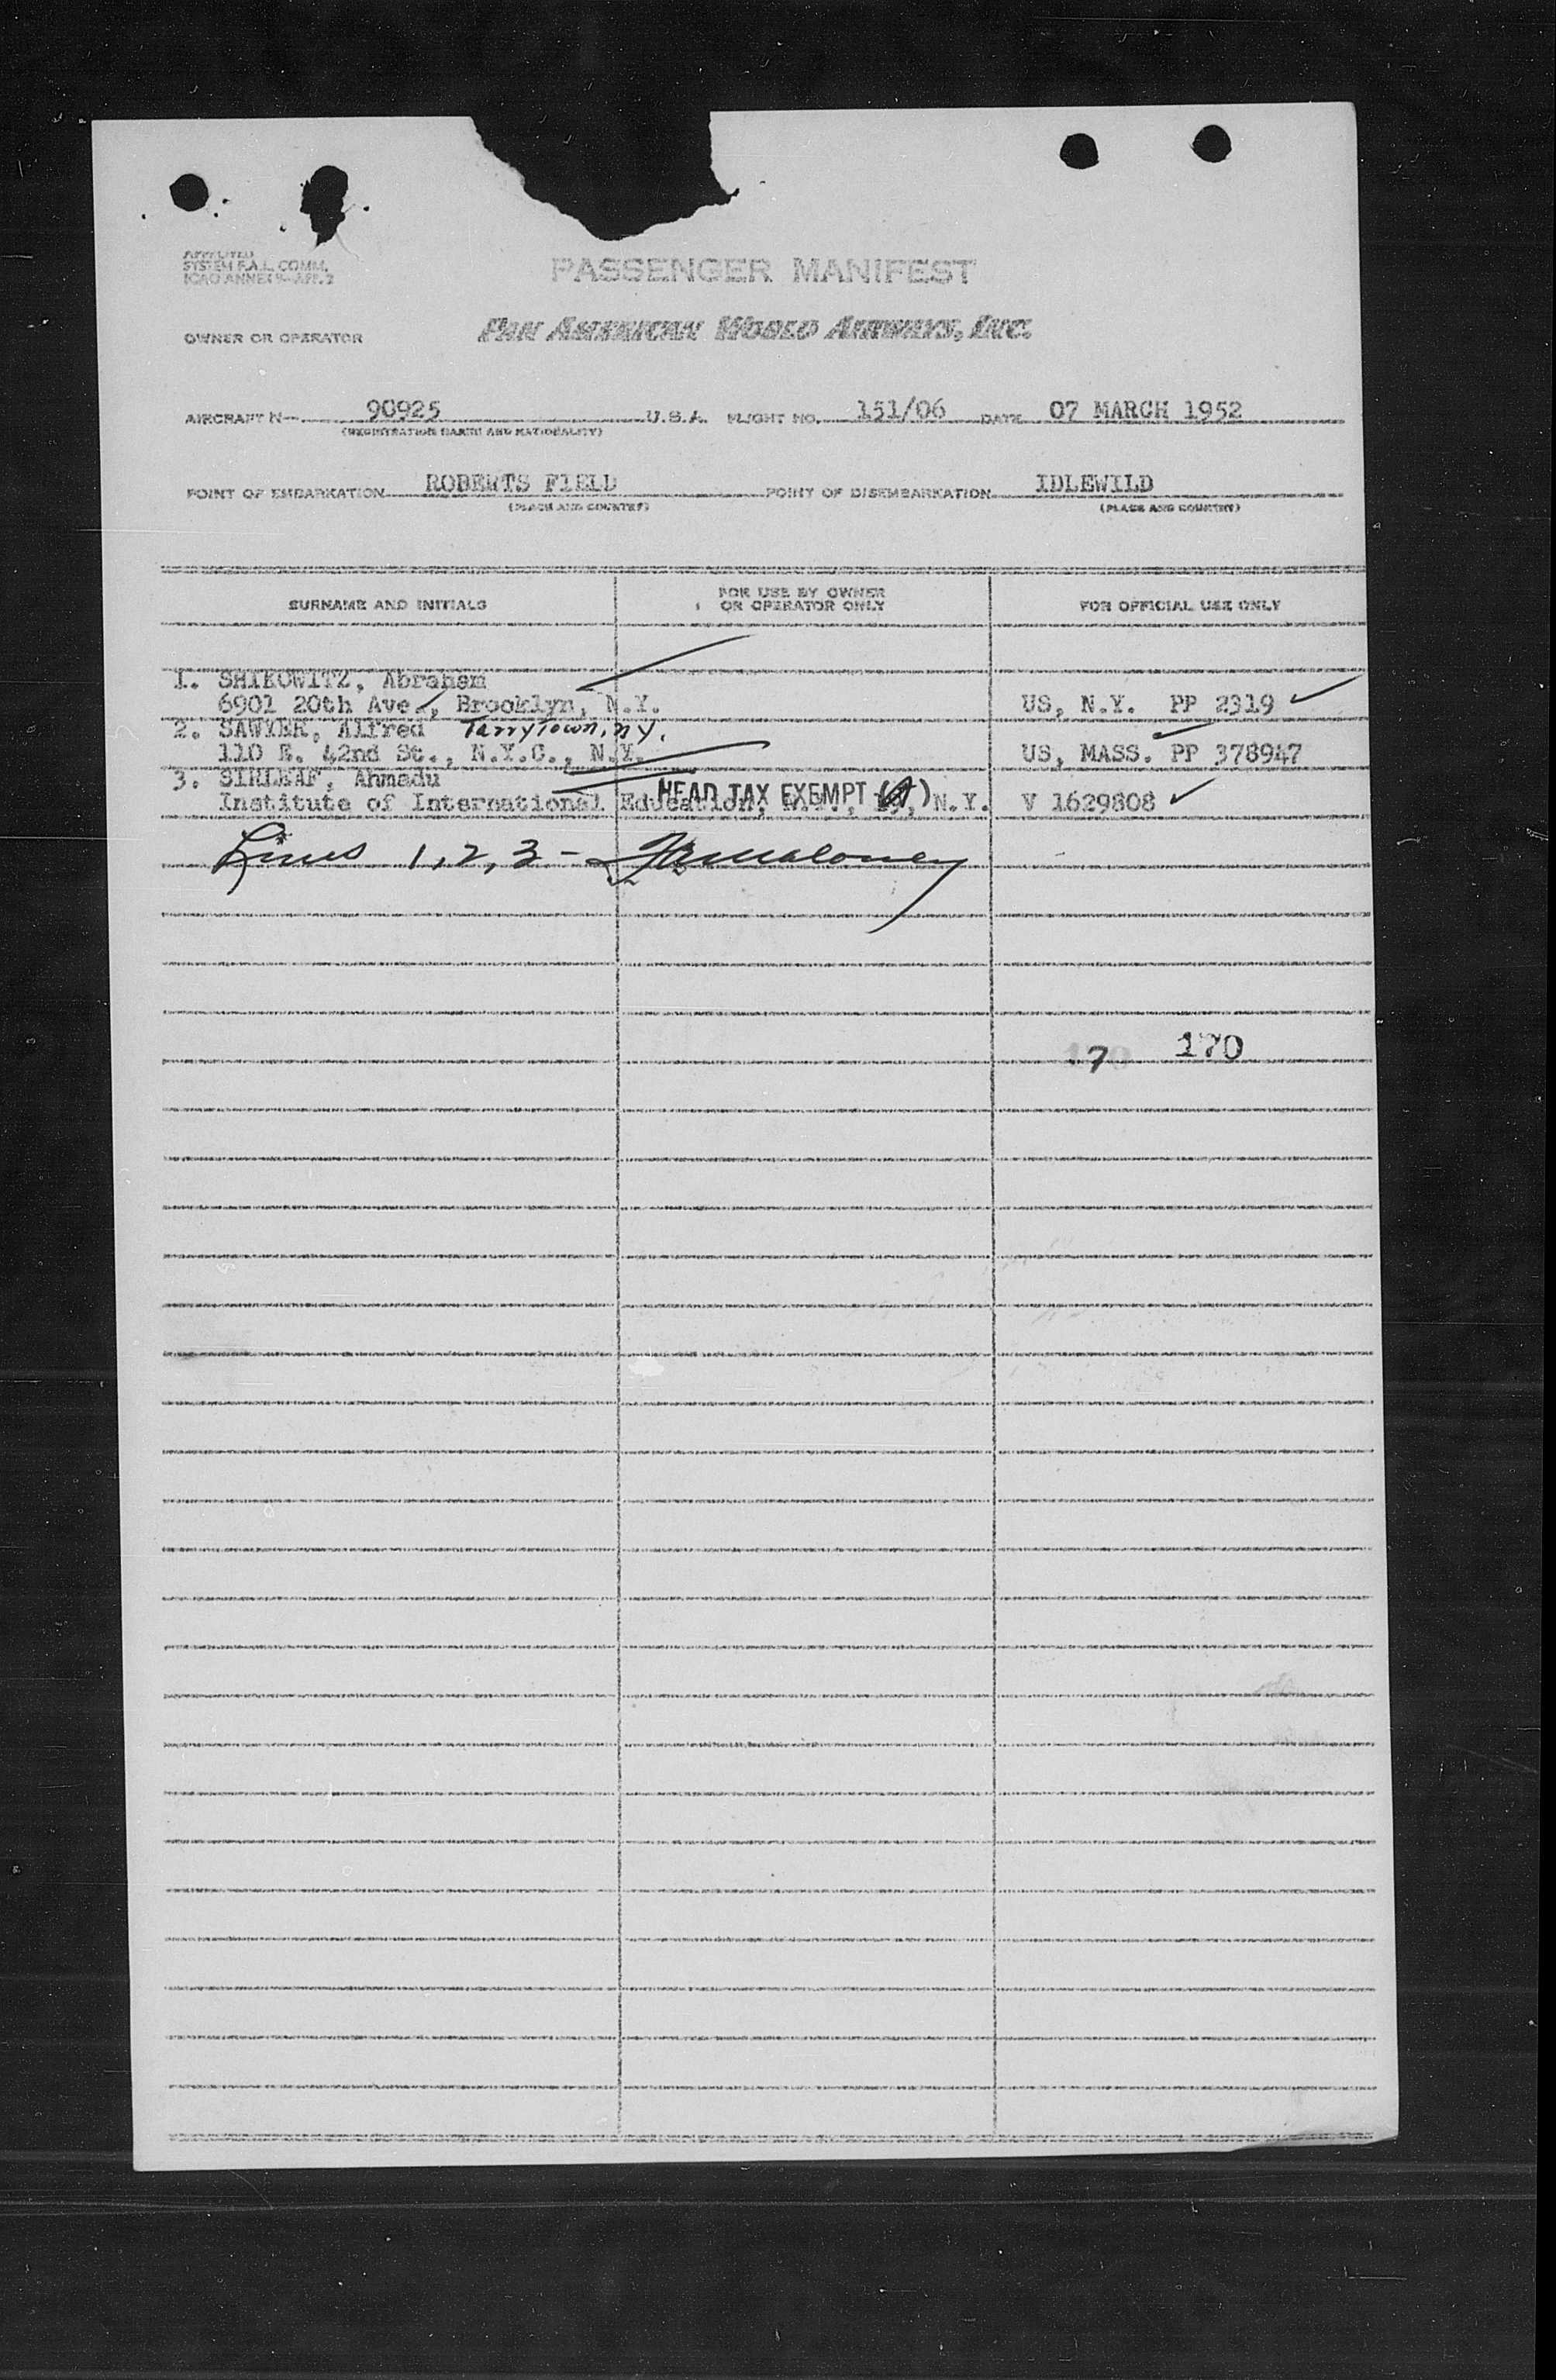 SYSTEM F.A.L. COMM.
ICAO ANNEX 9-APP. 2
PASSENGER MANIFEST
OWNER OR OPERATOR PAN AMERICAN WORLD AIRWAYS, INC.
AIRCRAFT N— 90925 U.S.A. FLIGHT NO. 151/06 DATE 07 MARCH 1952
(REGISTRATION MARKS AND NATIONALITY)
POINT OF EMBARKATION ROBERTS FIELD POINT OF DISEMBARKATION IDLEWILD
(PLACE AND COUNTRY) (PLACE AND COUNTRY)
SURNAME AND INITIALS FOR USE BY OWNER OR OPERATOR ONLY FOR OFFICIAL USE ONLY
1. SHIKOWITZ, Abraham
6901 20th Ave., Brooklyn, N.Y. US, N.Y. PP 2319
2. SAWYER, Alfred Tarrytown, N.Y.
110 E. 42nd St., N.Y.C., N.Y. US, MASS. PP 378947
3. SIRLEAF, Ahmadu
Institute of International Education, N.Y. V 1629808
HEAD TAX EXEMPT
Lines 1, 2, 3 - Maloney
7 170